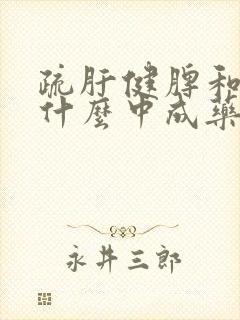 疏肝健脾和
什麼中成藥
永井三郎